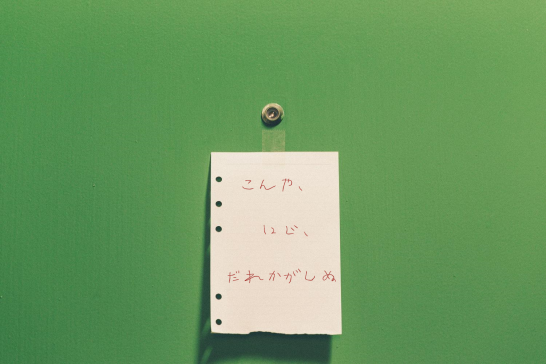 こんや、
にじ、
だれかがしぬ